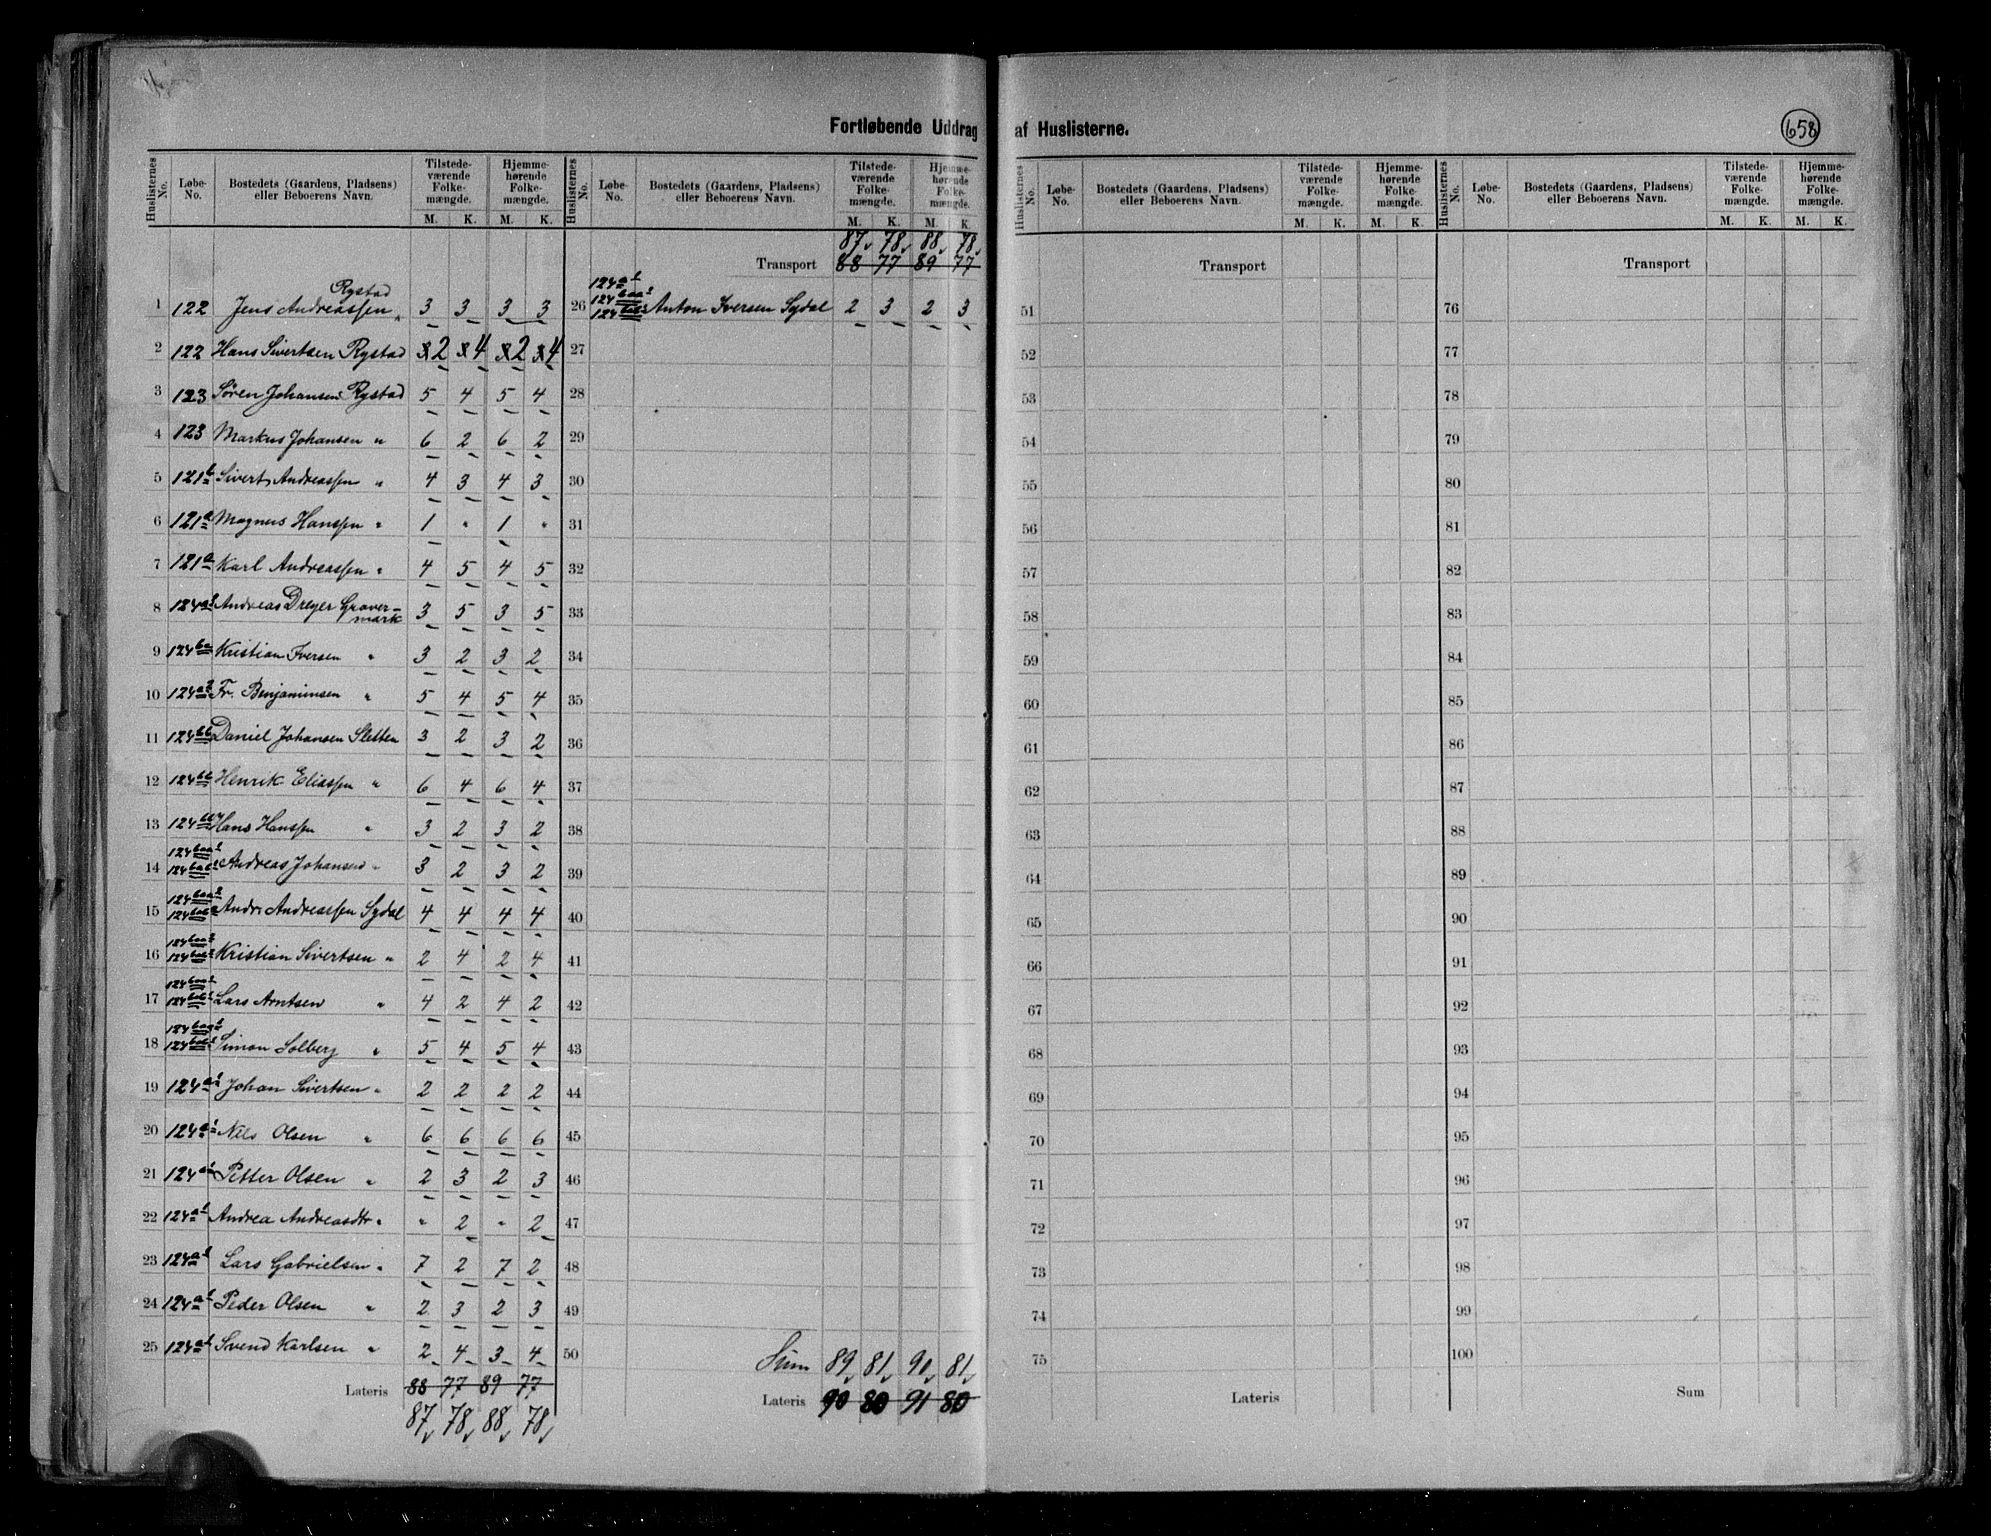 Fortløbende Uddrag af Huslisterne.
658
Huslisternes No. Løbe-No. Bostedets (Gaardens, Pladsens) eller Beboerens Navn. Tilstedeværende Folkemængde. M. K. Hjemmehørende Folkemængde. M. K.
1 122 Jens Andreassen Rystad 3 3 3 3
2 122 Hans Sivertsen Rystad 2 4 2 4
3 123 Søren Johansen Rystad 5 4 5 4
4 123 Markus Johansen " 6 2 6 2
5 121b Sivert Andreassen " 4 3 4 3
6 121a Magnus Hanssen " 1 " 1 "
7 121a Karl Andreassen " 4 5 4 5
8 124a2 Andreas Dreyer Gravermark 3 5 3 5
9 124ba Kristian Iversen " 3 2 3 2
10 124a3 Fr. Benjaminsen " 5 4 5 4
11 124bb Daniel Johansen Sletten 3 2 3 2
12 124bb Henrik Eliassen " 6 4 6 4
13 124 Hans Hanssen " 3 2 3 2
14 124baa2 124bab2 Andreas Johansen " 3 2 3 2
15 124baa2 124bab2 Andr. Andreassen Sydal 4 4 4 4
16 124baa2 124bab2 Kristian Sivertsen " 2 4 2 4
17 124baa2 124bab2 Lars Arntsen " 4 2 4 2
18 124baa2 124bab2 Simon Solberg " 5 4 5 4
19 124a1 Johan Sivertsen " 2 2 2 2
20 124a1 Nils Olsen " 6 6 6 6
21 124a1 Petter Olsen " 2 3 2 3
22 124a1 Andrea Andreasdtr " " 2 " 2
23 124a1 Lars Gabrielsen " 7 2 7 2
24 124a1 Peder Olsen " 2 3 2 3
25 124a1 Svend Karlsen " 2 4 3 4
Lateris 88 77 89 77
87 78 88 78
Huslisternes No. Løbe-No. Bostedets (Gaardens, Pladsens) eller Beboerens Navn. Tilstedeværende Folkemængde. M. K. Hjemmehørende Folkemængde. M. K.
87 78 88 78
Transport 88 77 89 77
26 124a1 124baa2 124bab2 Anton Iversen Sydal 2 3 2 3
27
28
29
30
31
32
33
34
35
36
37
38
39
40
41
42
43
44
45
46
47
48
49
50 Sum 89 81 90 81
Lateris 90 80 91 80
Huslisternes No. Løbe-No. Bostedets (Gaardens, Pladsens) eller Beboerens Navn. Tilstedeværende Folkemængde. M. K. Hjemmehørende Folkemængde. M. K.
Transport
51
52
53
54
55
56
57
58
59
60
61
62
63
64
65
66
67
68
69
70
71
72
73
74
75
Lateris
Huslisternes No. Løbe-No. Bostedets (Gaardens, Pladsens) eller Beboerens Navn. Tilstedeværende Folkemængde. M. K. Hjemmehørende Folkemængde. M. K.
Transport
76
77
78
79
80
81
82
83
84
85
86
87
88
89
90
91
92
93
94
95
96
97
98
99
100
Sum